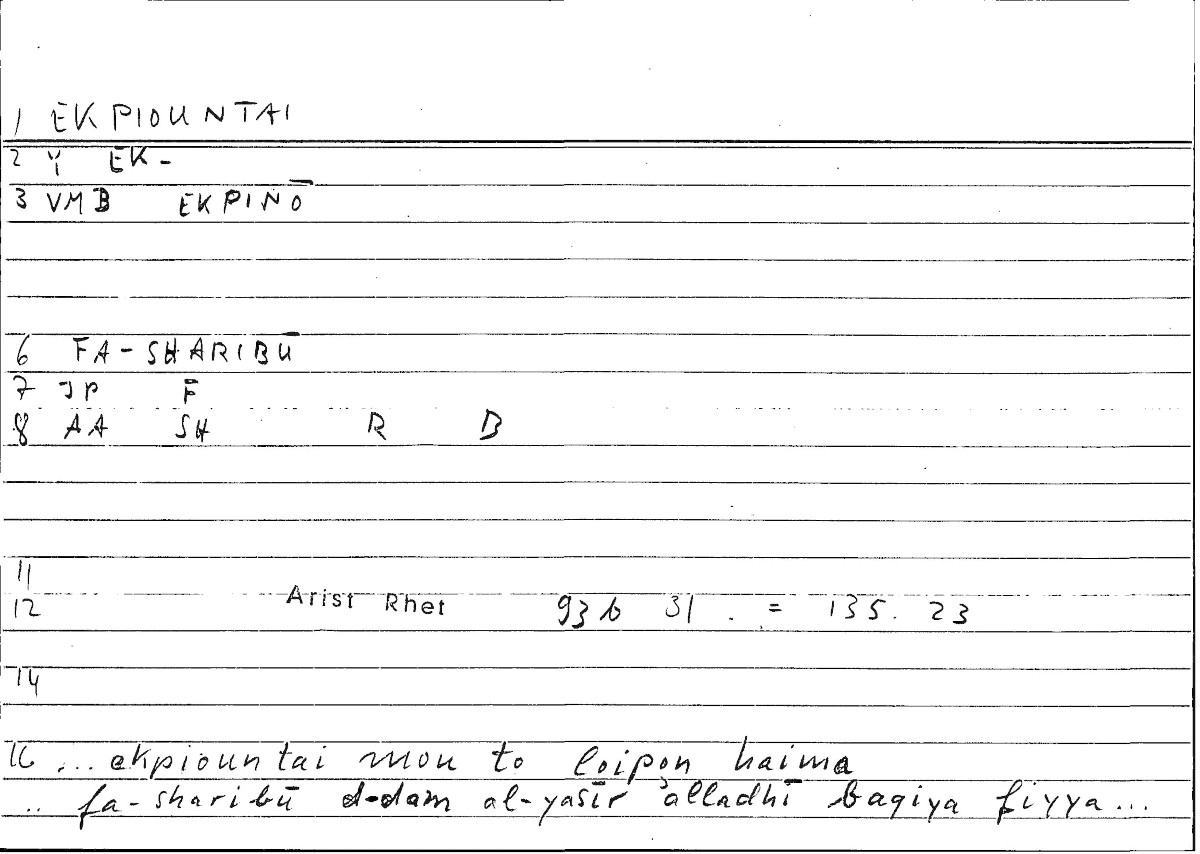 1 EKPIOUNTAI
2 Y EK-
3 VMB EKPINŌ
6 FA-SHARIBŪ
7 JP F
8 AA SH R B
11
12 Arist Rhet 93b 31 . = 135. 23
14
16 ... ekpiountai mou to loipon haima
.. fa-sharibū d-dam al-yasīr 'alladhī baqiya fiyya...